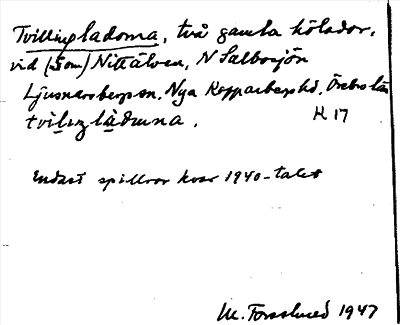 Tvillingladorna, två gamla hölador,
vid (i om) Nittälven, N Salbosjön
Ljusnarsbergs sn. Nya Kopparbergs hd. Örebro län
tvìliŋlàdʉna. K 17
Endast spillror kvar 1940-talet
M. Forsslund 1947